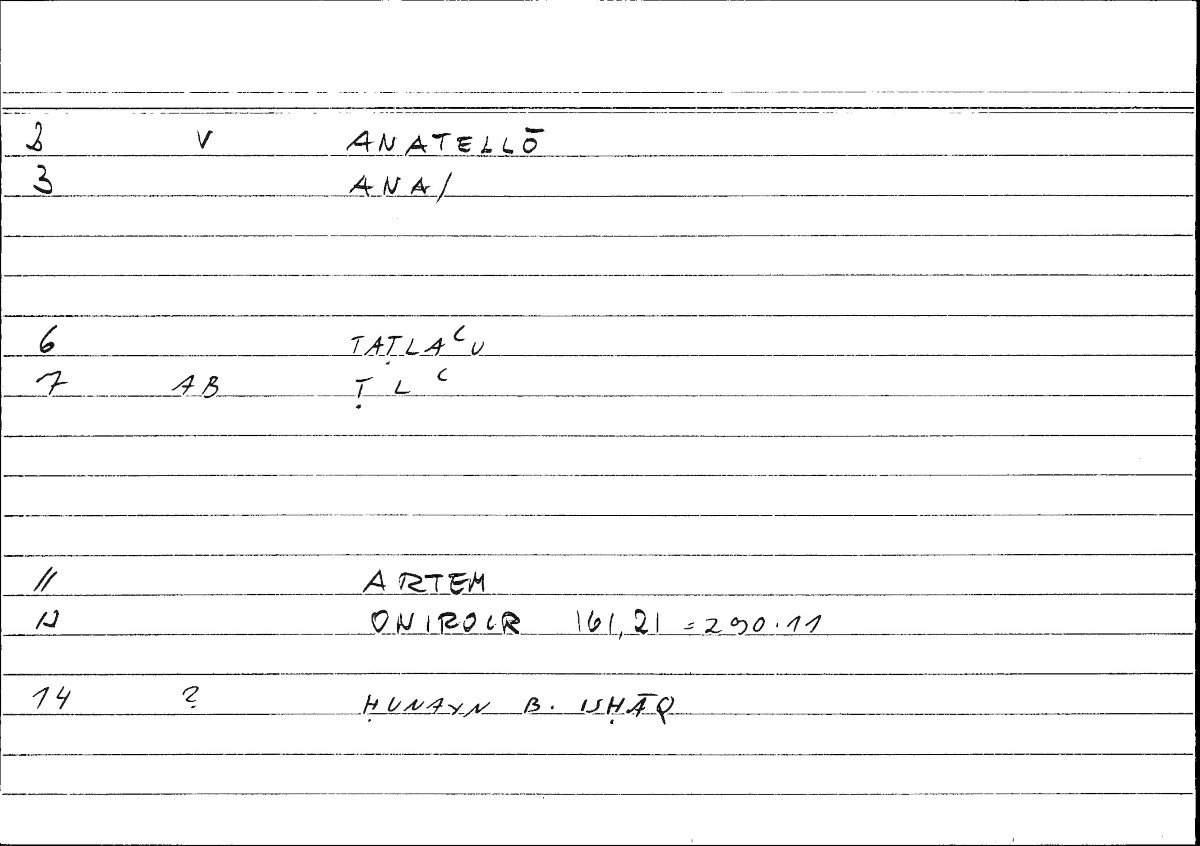 2 V ANATELLŌ
3 ANA/
6 TAṬLAʿU
7 AB Ṭ L ʿ
11 ARTEM
12 ONIROCR 161,21 = 290.11
14 ? ḤUNAYN B. ISḤĀQ